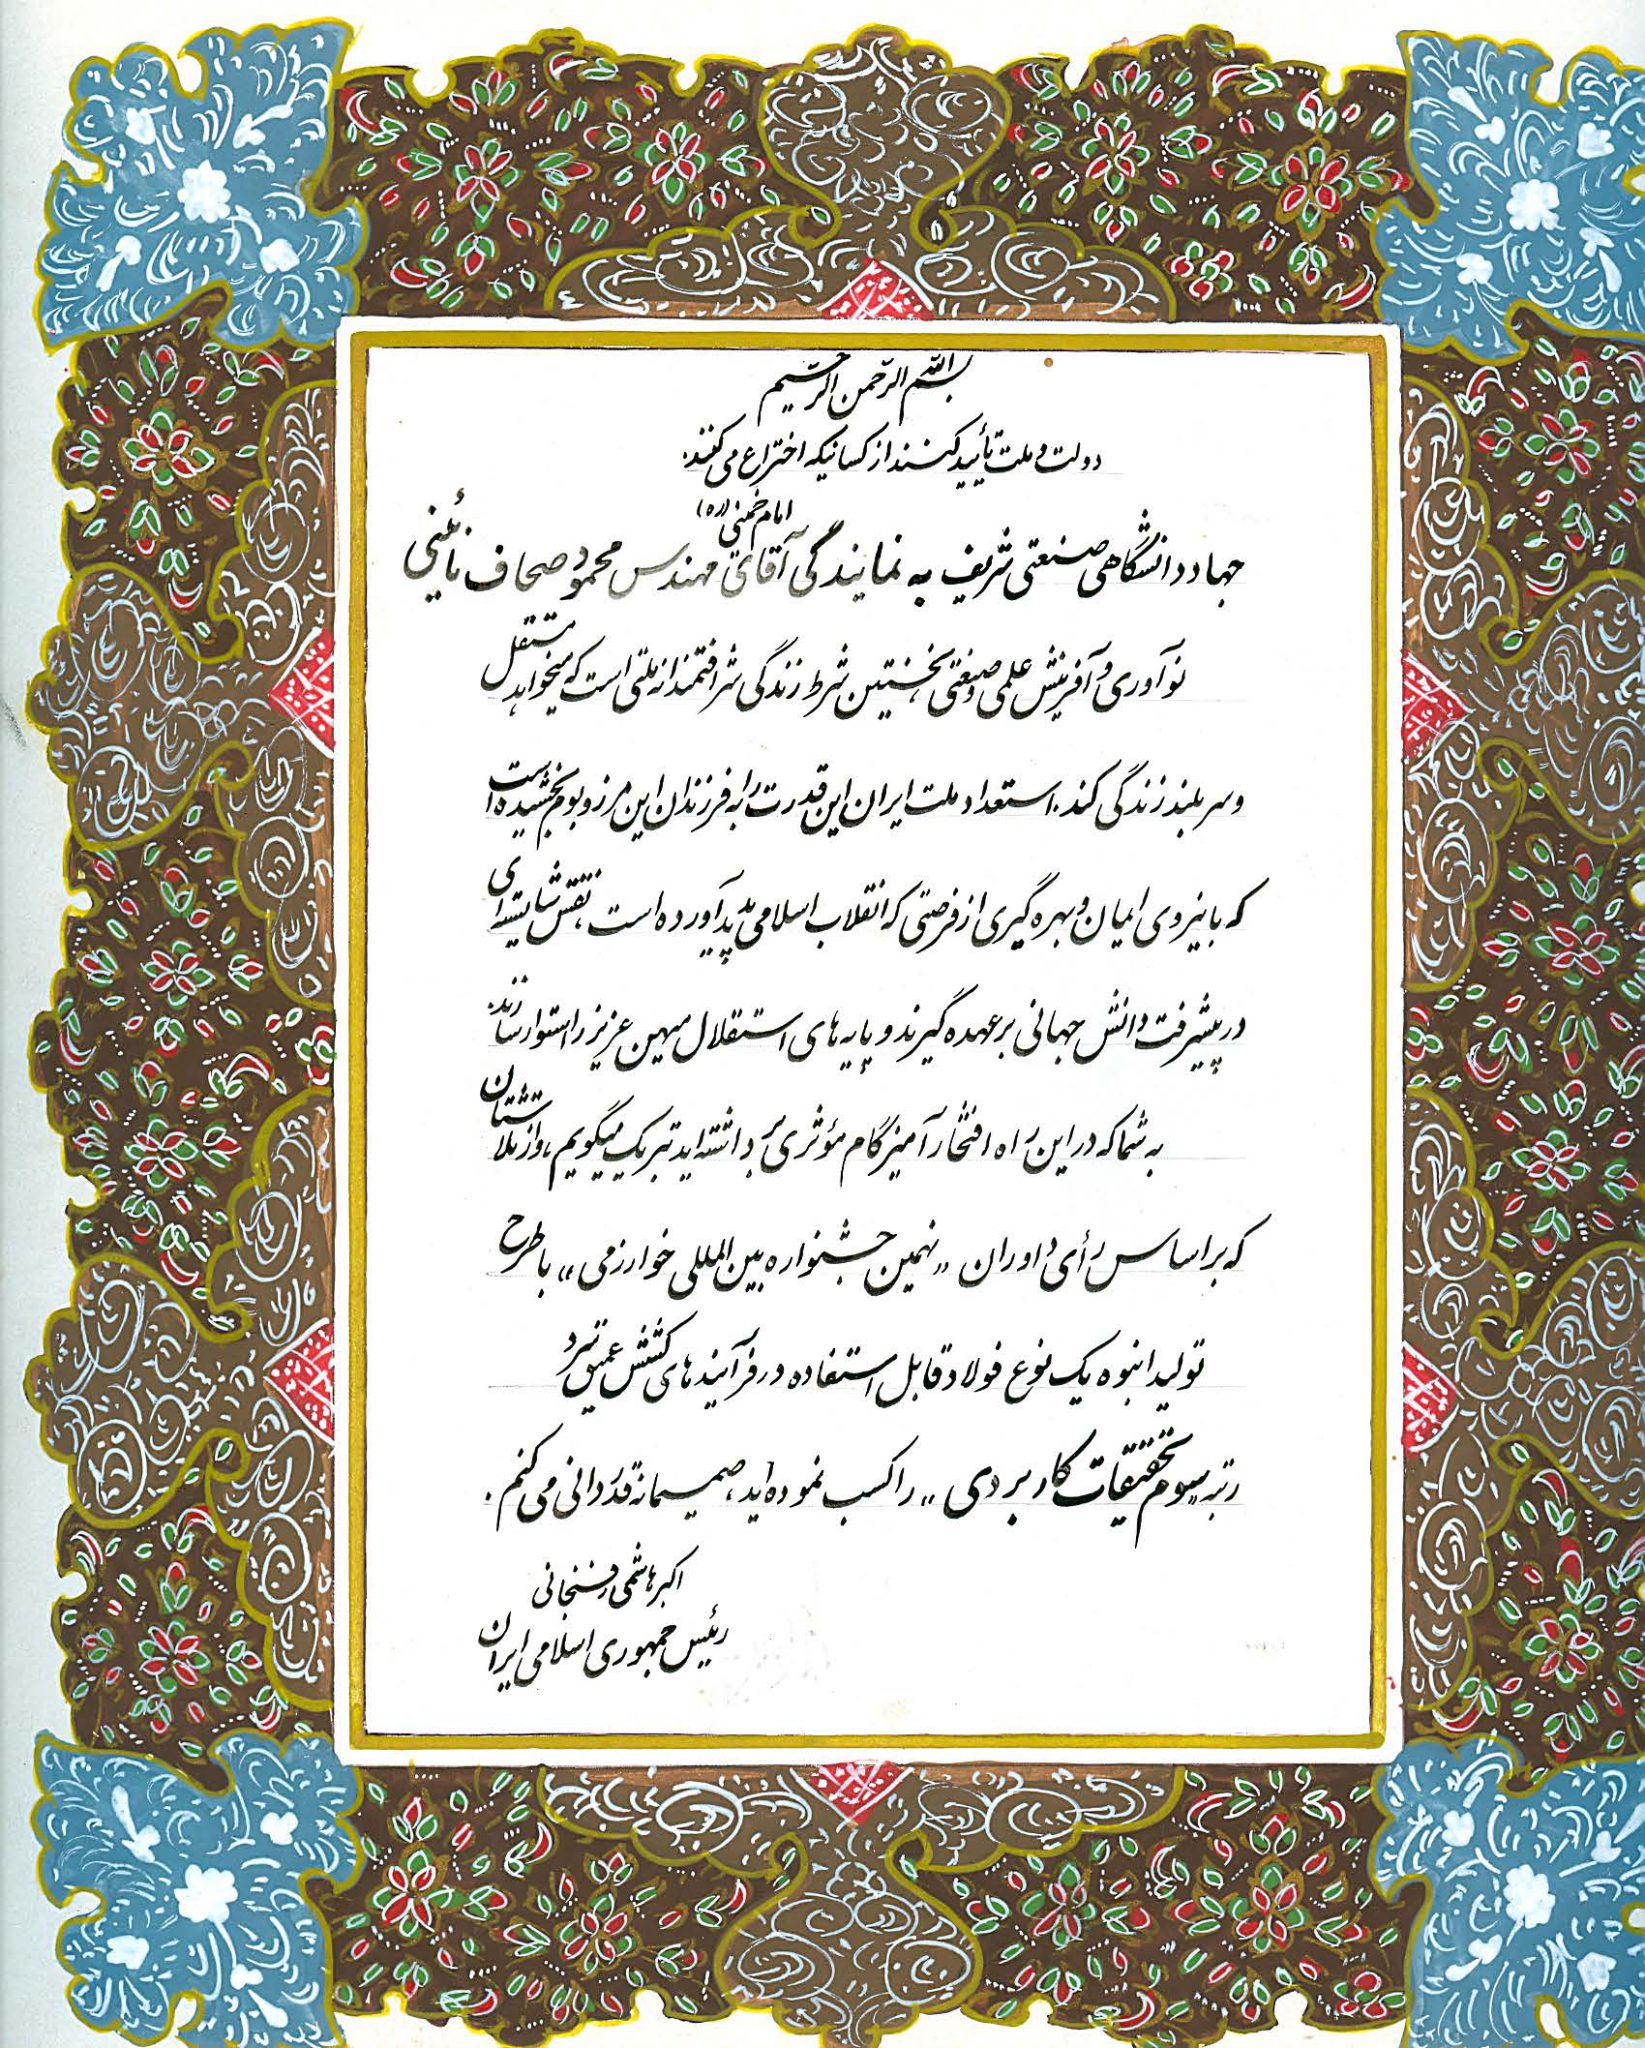 بسم الله الرحمن الرحیم
دولت و ملت تأیید کنند از کسانیکه اختراع می کنند.
امام خمینی (ره)
جهاد دانشگاهی صنعتی شریف به نمایندگی آقای مهندس محمود صحاف نائینی
نوآوری و آفرینش علمی و صنعتی، نخستین شرط زندگی شرافتمندانه ملتی است که میخواهد، مستقل
و سربلند زندگی کند. استعداد ملت ایران این قدرت را به فرزندان این مرز و بوم بخشیده است
که با نیروی ایمان و بهره گیری از فرصتی که انقلاب اسلامی پدید آورده است، نقش شایسته ای
در پیشرفت دانش جهانی بر عهده گیرند و پایه های استقلال میهن عزیز را استوار سازند.
به شما که در این راه افتخار آمیز گام مؤثری بر داشته اید تبریک میگویم، و از تلاشتان
که بر اساس رأی داوران «نهمین جشنواره بین المللی خوارزمی» با طرح
تولید انبوه یک نوع فولاد قابل استفاده در فرآیندهای کشش عمیق سرد
رتبه سوم تحقیقات کاربردی» را کسب نموده اید، صمیمانه قدردانی می کنم.
اکبر هاشمی رفسنجانی
رئیس جمهوری اسلامی ایران